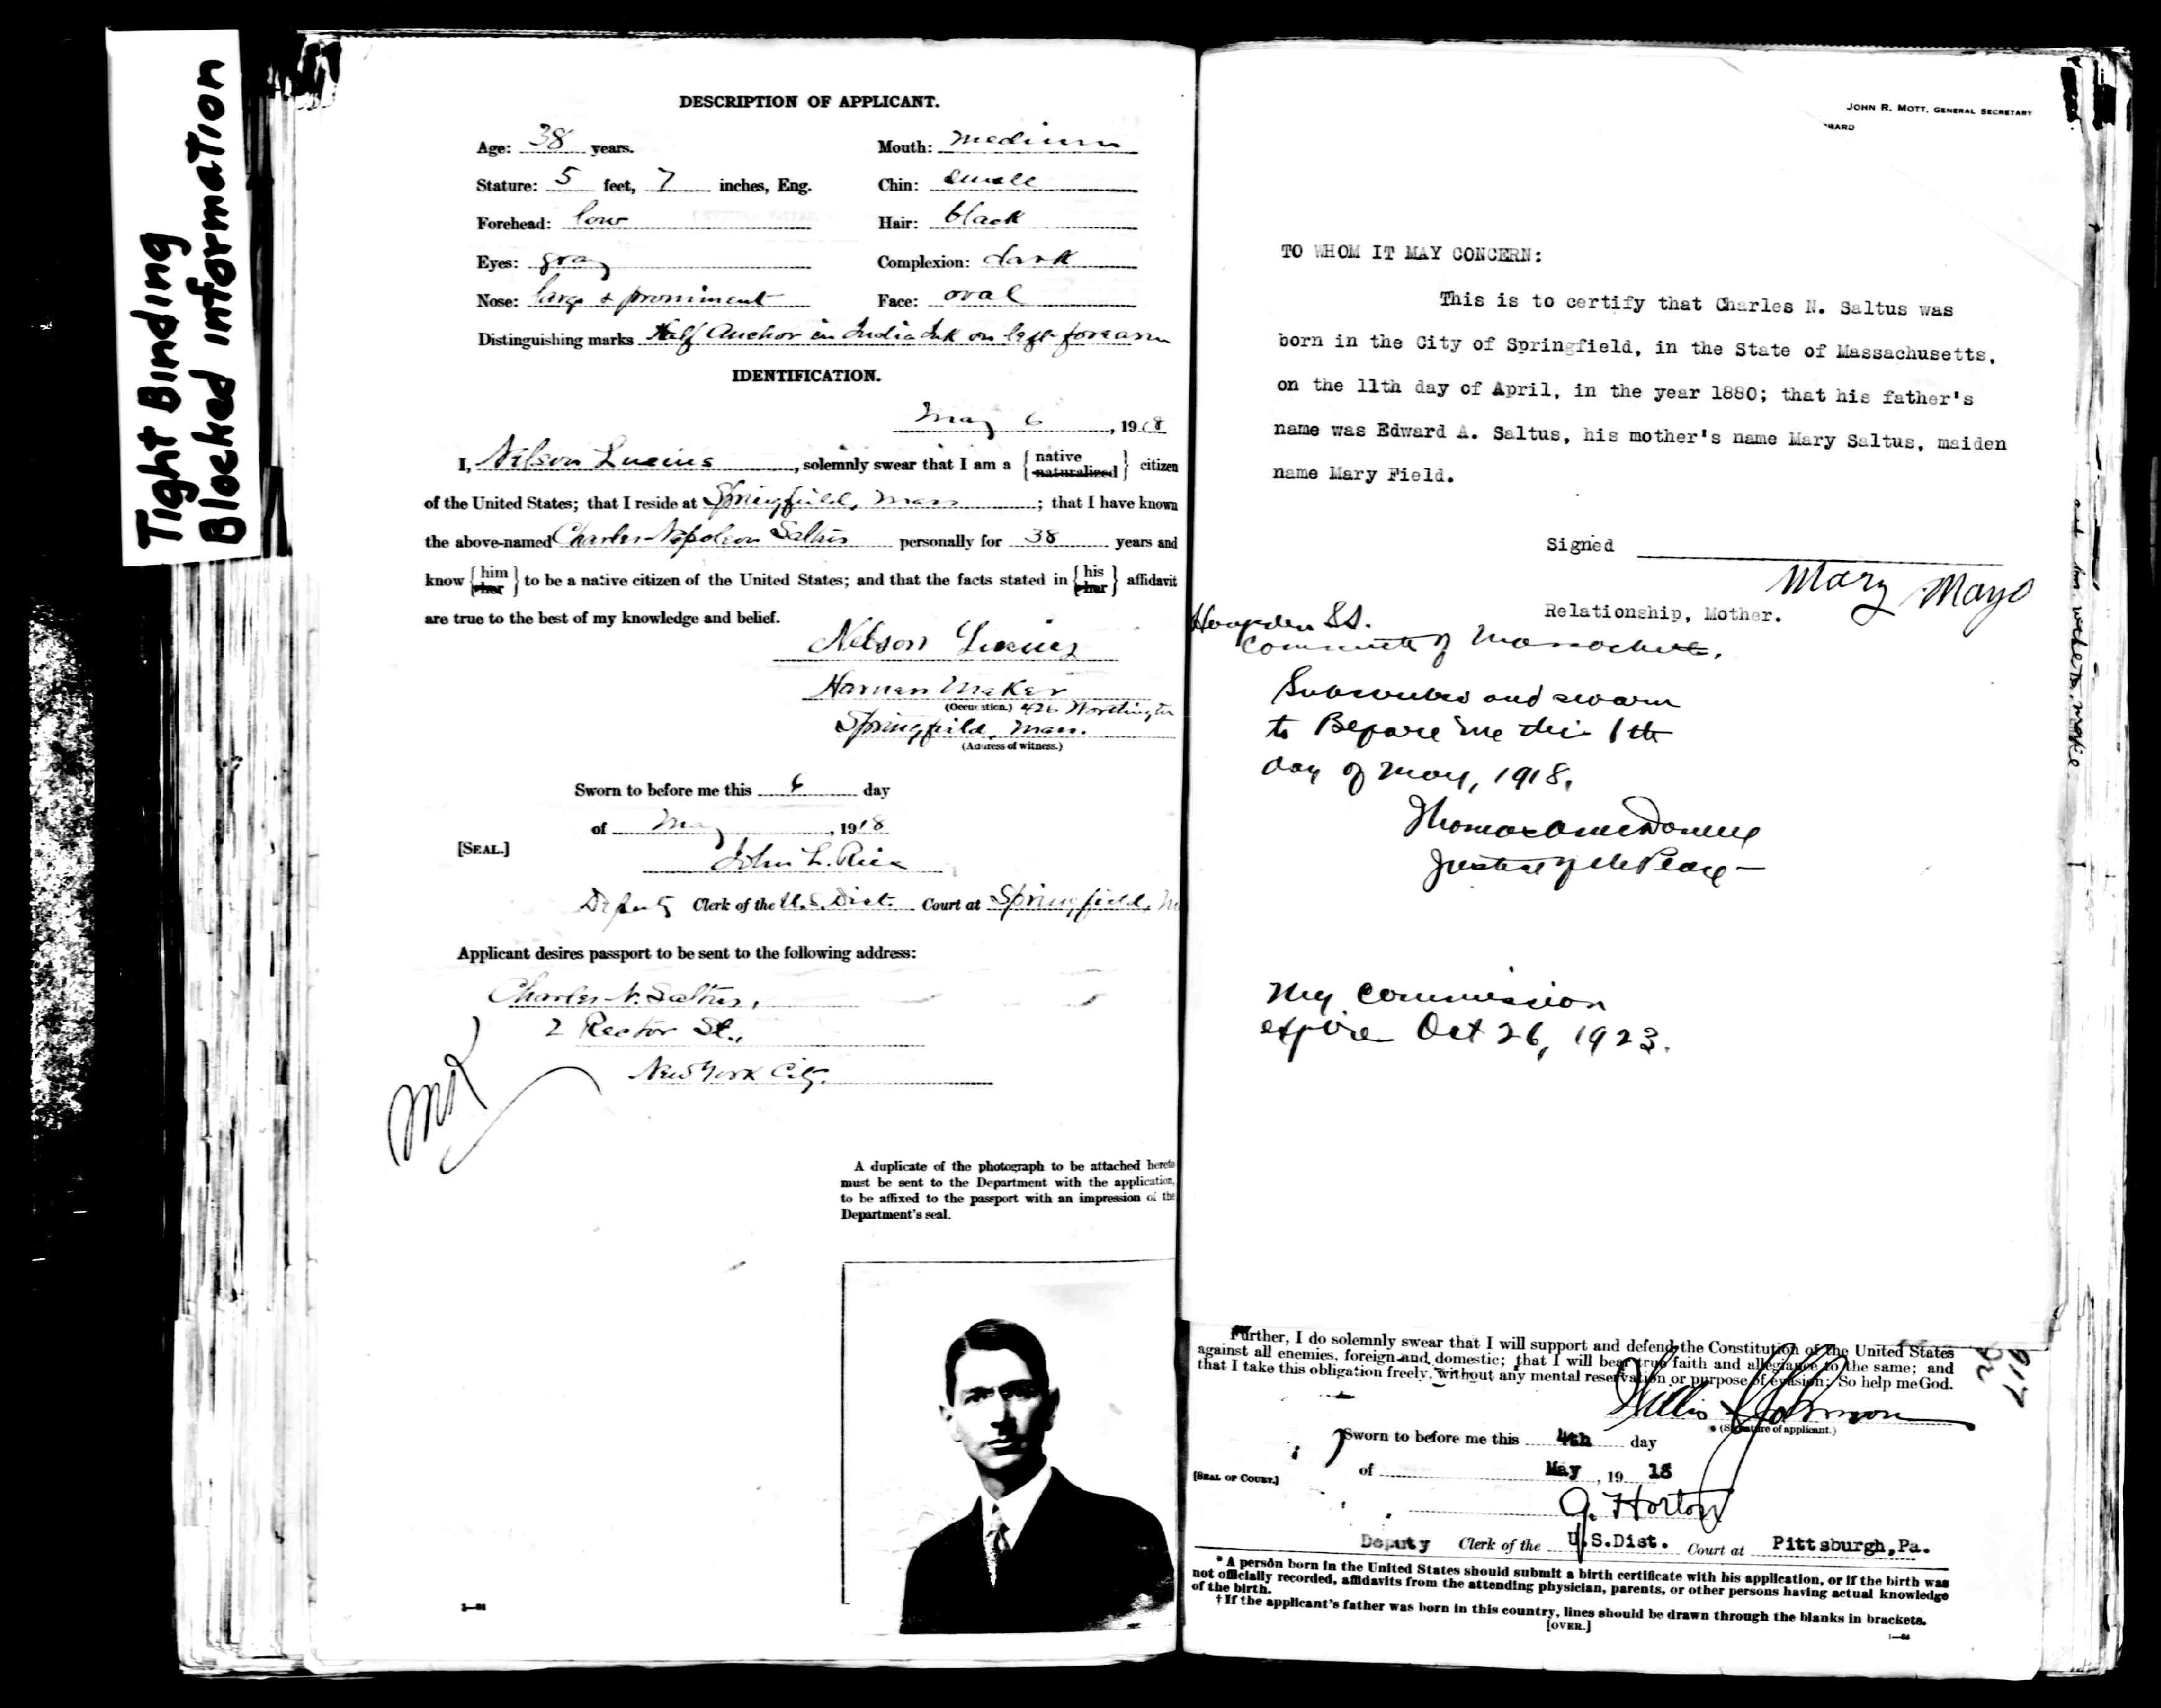 Tight Binding
Blocked information
DESCRIPTION OF APPLICANT.
Age: 38 years.
Mouth: medium
Stature: 5 feet, 7 inches, Eng.
Chin: small
Forehead: low
Hair: black
Eyes: gray
Complexion: dark
Nose: large & prominent
Face: oval
Distinguishing marks Half Anchor in India Ink on left forearm
IDENTIFICATION.
May 6, 1918
I, Nelson Lucius, solemnly swear that I am a { native naturalized } citizen
of the United States; that I reside at Springfield, Mass; that I have known
the above-named Charles Napoleon Saltus personally for 38 years and
know { him her } to be a native citizen of the United States; and that the facts stated in { his her } affidavit
are true to the best of my knowledge and belief.
Nelson Lucius
Harness Maker
(Occupation.) 426 Worthington
Springfield, Mass.
(Address of witness.)
Sworn to before me this 6 day
of May, 1918
[SEAL.]
John L. Rice
Deputy Clerk of the U.S. Dist. Court at Springfield, M
Applicant desires passport to be sent to the following address:
Charles N. Saltus,
2 Rector St.,
New York City.
A duplicate of the photograph to be attached hereto
must be sent to the Department with the application,
to be affixed to the passport with an impression of the
Department's seal.
JOHN R. MOTT, GENERAL SECRETARY
TO WHOM IT MAY CONCERN:
This is to certify that Charles N. Saltus was
born in the City of Springfield, in the State of Massachusetts,
on the 11th day of April, in the year 1880; that his father's
name was Edward A. Saltus, his mother's name Mary Saltus, maiden
name Mary Field.
Signed
Mary Mayo
Relationship, Mother.
Hampden SS.
Subscribed and sworn
to Before me this 1th
day of May, 1918,
Justice of the Peace
My Commission
expire Oct 26, 1923.
Further, I do solemnly swear that I will support and defend the Constitution of the United States
against all enemies, foreign and domestic; that I will bear true faith and allegiance to the same; and
that I take this obligation freely, without any mental reservation or purpose of evasion: So help me God.
Willis Johnson
(Signature of applicant.)
Sworn to before me this 4th day
of May, 19 18
[SEAL OF COURT.]
G. Horton
Deputy Clerk of the U.S.Dist. Court at Pittsburgh,Pa.
* A person born in the United States should submit a birth certificate with his application, or if the birth was
not officially recorded, affidavits from the attending physician, parents, or other persons having actual knowledge
of the birth.
† If the applicant's father was born in this country, lines should be drawn through the blanks in brackets.
[OVER.]